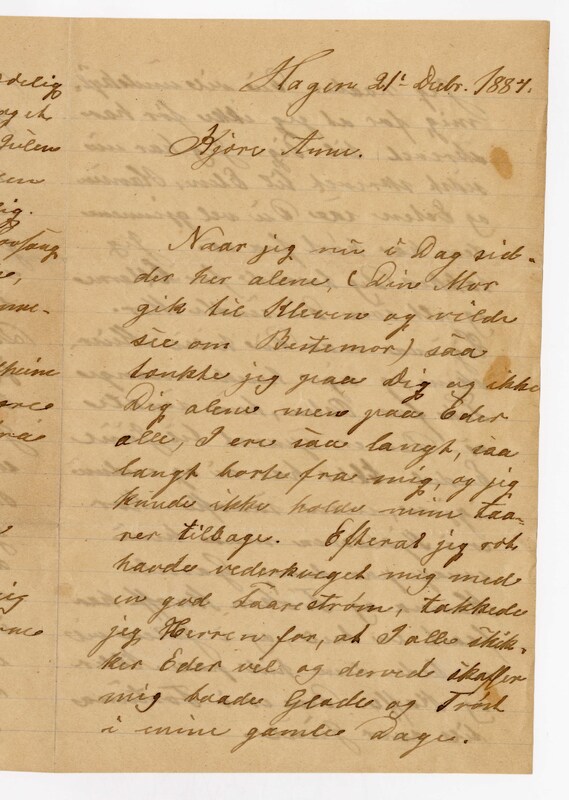 Hagen 21' Decbr. 1887.
Kjære Anne.
Naar jeg nu i Dag sid-
der her alene, (Din Mor
gik til Kleven og vilde
see om Bestemor) saa
tænkte jeg paa Dig og ikke
Dig alene men paa Eder
alle, I ere saa langt, saa
langt borte fra mig, og jeg
kunde ikke holde mine taa-
rer tilbage. Efterat jeg ret
havde vederkveget mig med
en god taarestrøm, takkede
jeg Herren for, at I alle skik-
ker Eder vel og derved skaffer
mig baade Glæde og Trøst
i mine gamle Dage.